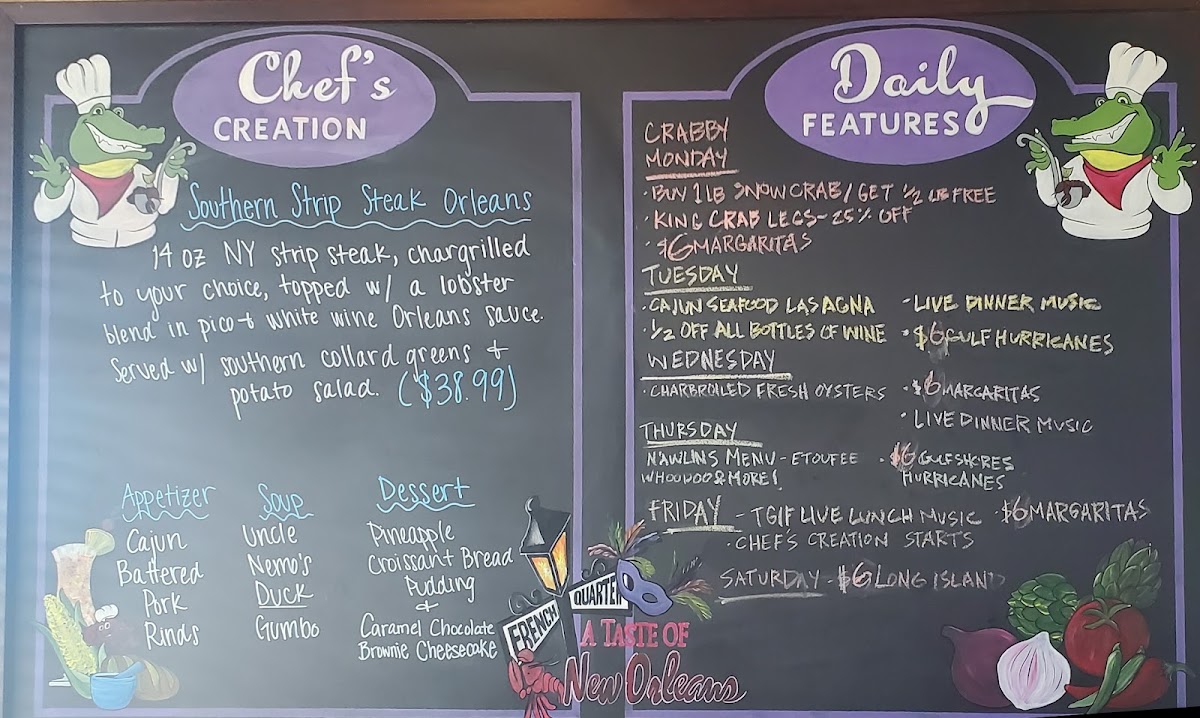 Chef's
CREATION
Southern Strip Steak Orleans
14 oz NY strip steak, chargrilled
to your choice, topped w/ a lobster
blend in pico & white wine Orleans sauce.
Served w/ southern collard greens &
potato salad. ($38.99)
Appetizer
Cajun
Battered
Pork
Rinds
Soup
Uncle
Nemo's
Duck
Gumbo
Dessert
Pineapple
Croissant Bread
Pudding
&
Caramel Chocolate
Brownie Cheesecake
FRENCH
QUARTER
A TASTE OF
New Orleans
Daily
FEATURES
CRABBY
MONDAY
· BUY 1 LB SNOW CRAB / GET 1/2 LB FREE
· KING CRAB LEGS - 25% OFF
· $6 MARGARITAS
TUESDAY
· CAJUN SEAFOOD LASAGNA - LIVE DINNER MUSIC
· 1/2 OFF ALL BOTTLES OF WINE · $6 GULF HURRICANES
WEDNESDAY
· CHARBROILED FRESH OYSTERS · $6 MARGARITAS
· LIVE DINNER MUSIC
THURSDAY
NAWLINS MENU - ETOUFEE · $6 GULFSHORES
WHOODOO & MORE! HURRICANES
FRIDAY - TGIF LIVE LUNCH MUSIC · $6 MARGARITAS
· CHEF'S CREATION STARTS
SATURDAY - $6 LONG ISLAND